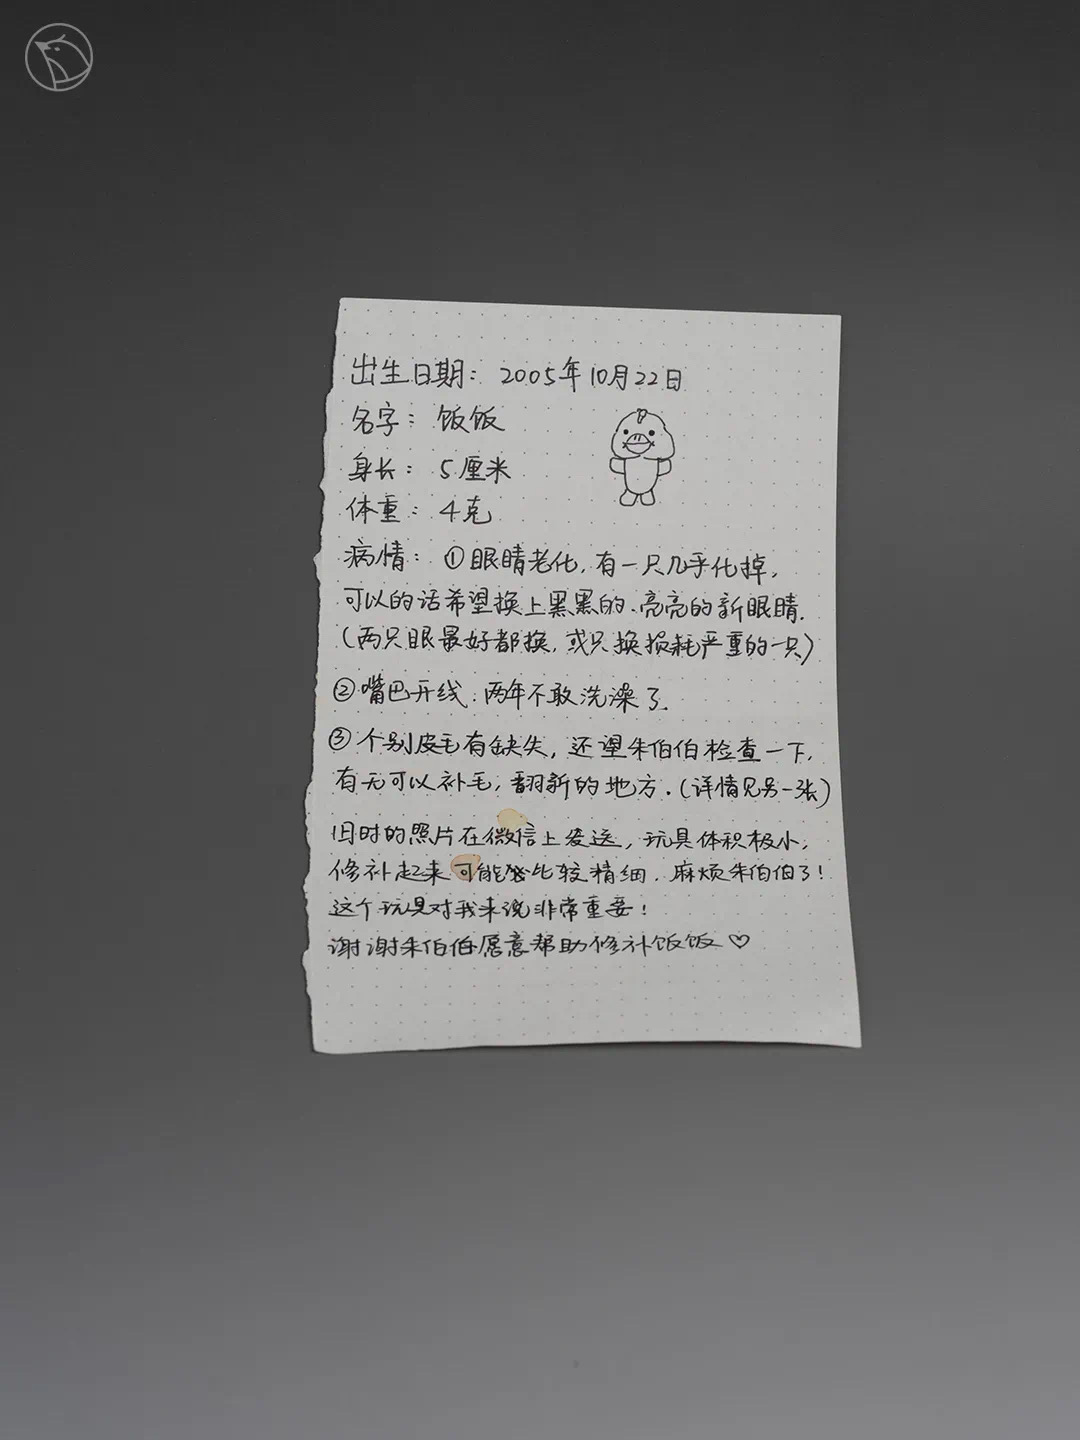 出生日期：2005年10月22日
名字：饭饭
身长：5厘米
体重：4克
病情：①眼睛老化，有一只几乎化掉，
可以的话希望换上黑黑的、亮亮的新眼睛.
（两只眼最好都换，或只换损耗严重的一只）
②嘴巴开线.两年不敢洗澡了.
③个别皮毛有缺失，还望朱伯伯检查一下，
有无可以补毛，翻新的地方.（详情见另一张）
旧时的照片在微信上发送，玩具体积极小，
修补起来可能比较精细.麻烦朱伯伯了！
这个玩具对我来说非常重要！
谢谢朱伯伯愿意帮助修补饭饭♡